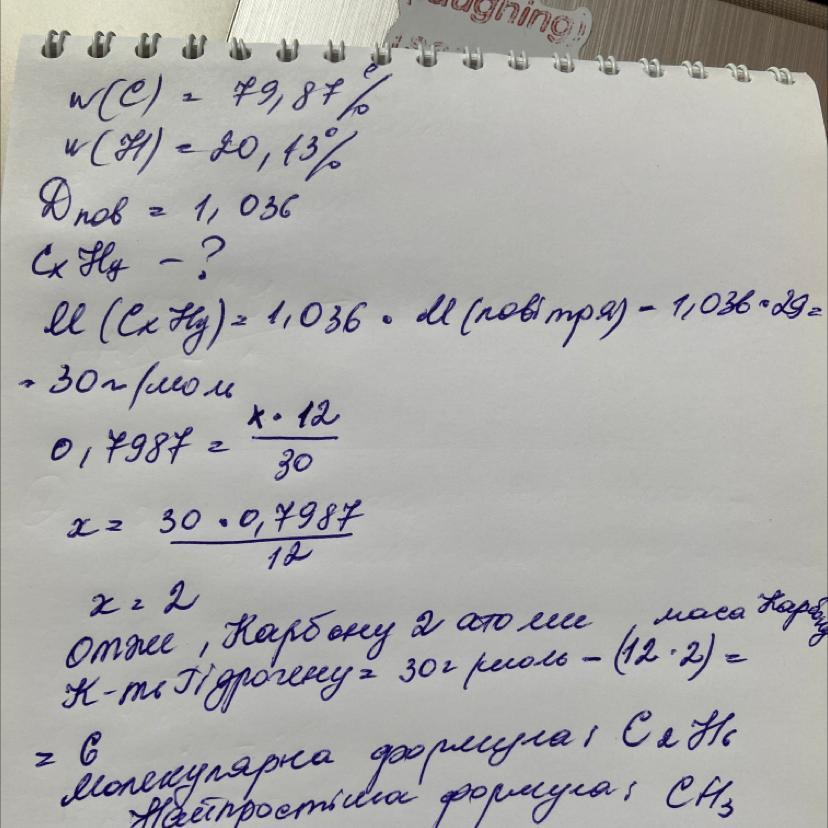 laughing
w(C) = 79,87%
w(H) = 20,13%
Dпов = 1,036
CxHy - ?
M(CxHy) = 1,036 • M(повітря) = 1,036 • 29 =
= 30 г/моль
0,7987 = x • 12 / 30
x = 30 • 0,7987 / 12
x = 2
Отже, Карбону 2 атоми, маса Карбону
К-ть Гідрогену = 30 г/моль - (12 • 2) =
= 6
Молекулярна формула: C2H6
Найпростіша формула: CH3